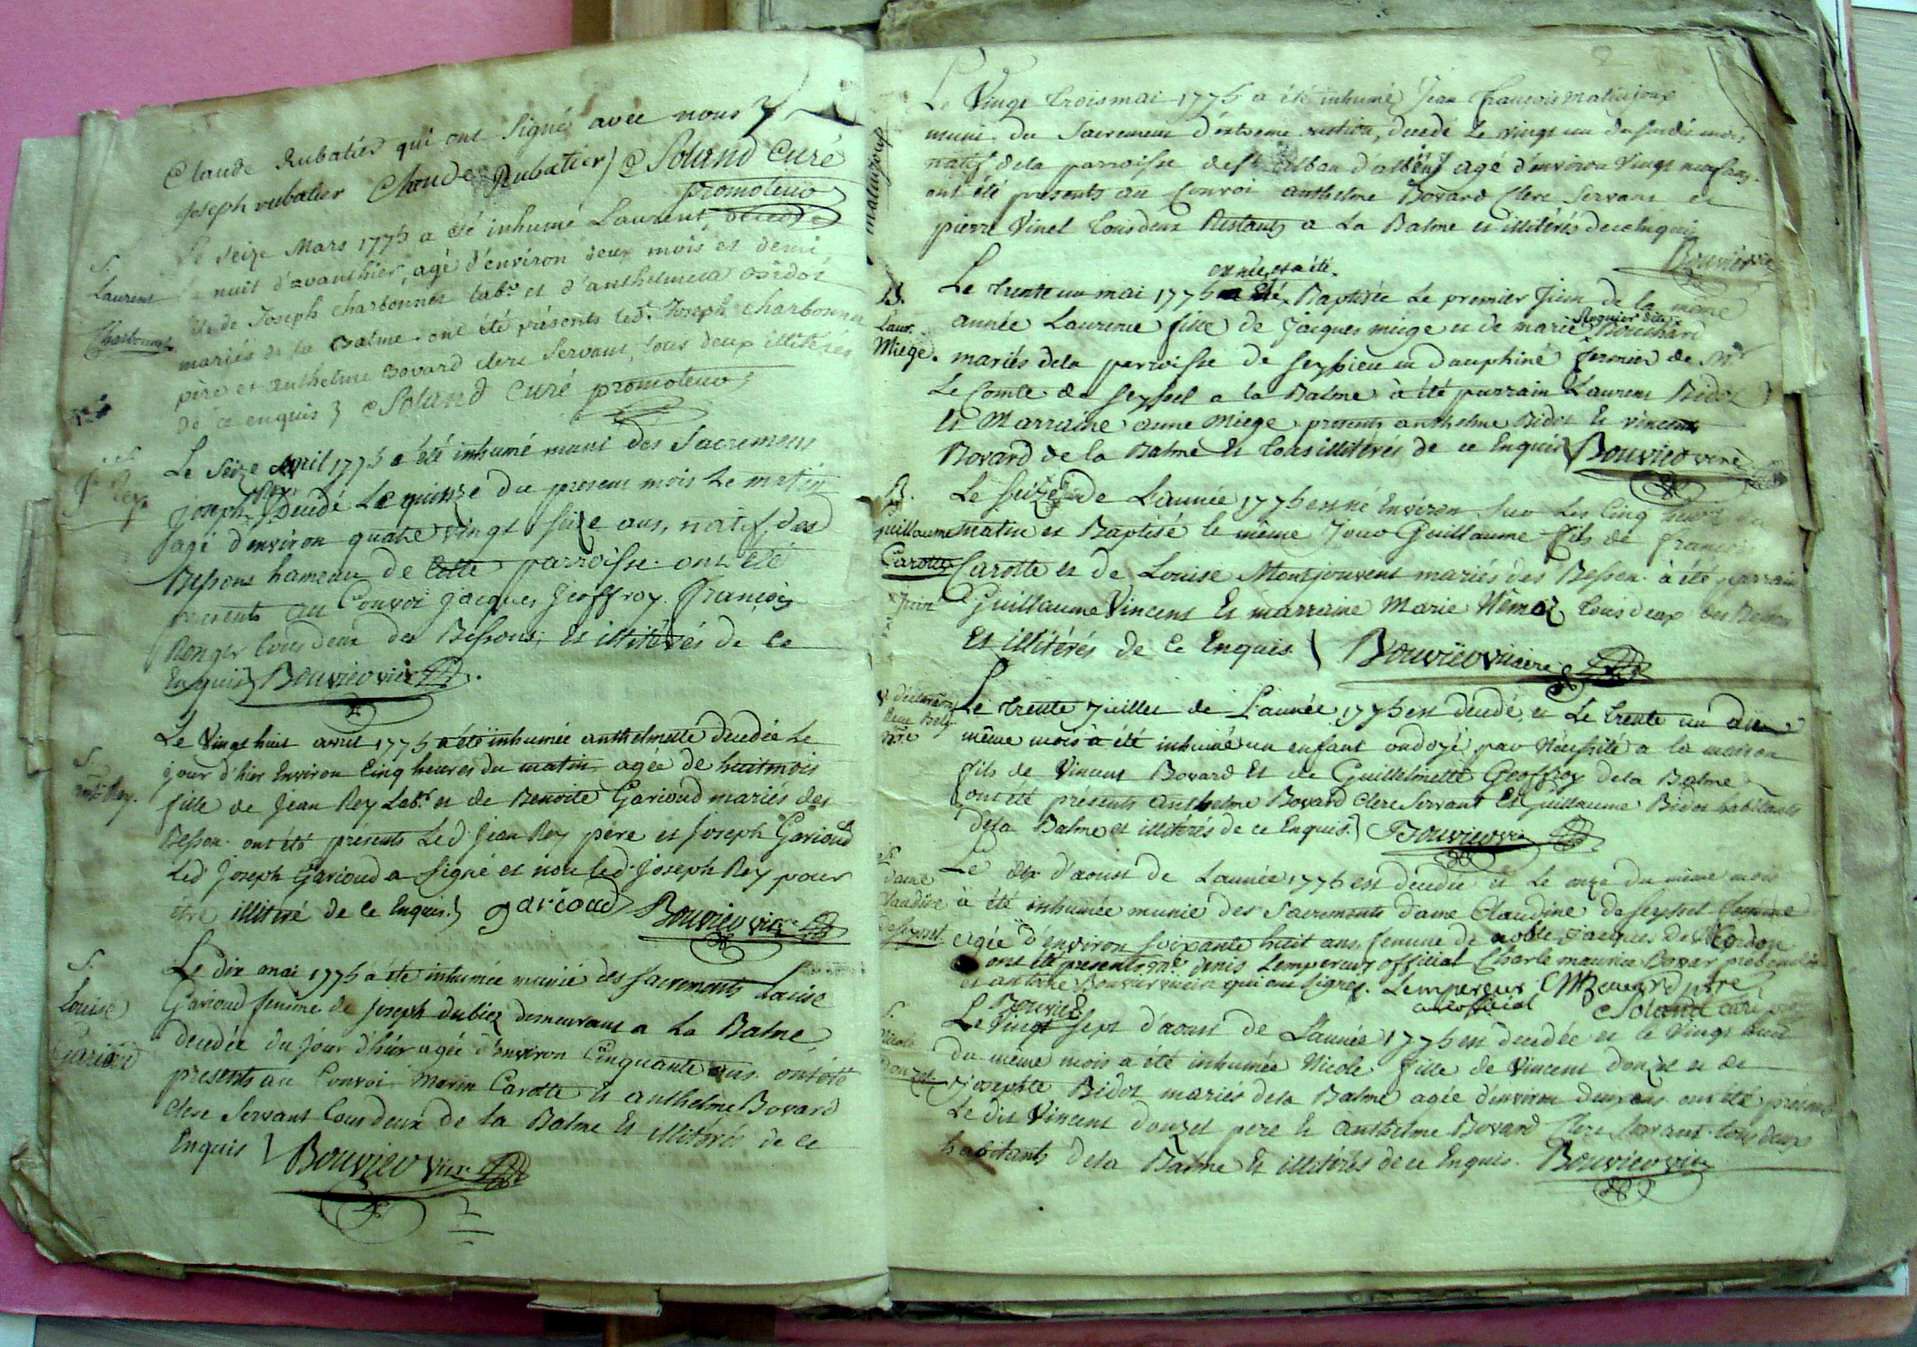 Claude Rubatier qui ont signés avec nous
Joseph rubatier Claude Rubatier Soland Curé
promoteur
S.
Laurent
Charbonnet
Le seize Mars 1775 a été inhumé Laurent, décédé
la nuit d'avanthier, agé d'environ deux mois et demi
fils de Joseph charbonnet labr. et d'anthelmetta Bidot
mariés de la Balme. ont été présents led. Joseph charbonnet
père et anthelme Bovard clerc servant, tous deux illitérés
de ce enquis Soland Curé promoteur
S.
Rey
Le seize avril 1775 a été inhumé muni des sacremens
joseph Rey décedé Le quinze du present mois Le matin
agé d'environ quatre vingt seize ans, natif des
Bessons hameau de Cette parroisse. ont été
presents au Convoi Jacques Geoffroy. François
Roger tous deux des Bessons, Et illitérés de Ce
Enquis Bouvier vic.
S.
anth. Rey.
Le Vingt huit avril 1775 a été inhumée anthelmette decedée Le
jour d'hier Environ Cinq heures du matin, agée de huit mois
fille de Jean Rey Labr. et de Benoite Garioud mariés des
Besson. ont été présents Led. Jean Rey père et Joseph Garioud
Led. Joseph Garioud a signé et non led. Joseph Rey pour
être illitéré de Ce Enquis. garioud Bouvier vic.
S.
Louise
Garioud
Le dix mai 1775 a été inhumée munie des sacrements Louise
Garioud femme de Joseph dubiez demeurant a La Balme
decedée du jour d'hier agée d'environ Cinquante ans. ont été
presents au Convoi Marin Carotte Et anthelme Bovard
Clerc Servant tous deux de la Balme Et illitérés de Ce
Enquis Bouvier vic.
2
Le Vingt trois mai 1775 a été inhumé Jean François
muni du Sacrement d'extreme onction, decedé Le vingt un du susdit mois,
natif de la parroisse de St. alban agé d'environ Vingt neuf ans.
ont été présents au Convoi anthelme Bovard Clerc Servant et
pierre Vinet tous deux a La Balme et illitérés de ce Enquis
Bouvier vic.
B.
Laur.
Miege.
est née, et a été
Le trente un mai 1775 Baptisée Le premier Juin de la même
année Laurence fille de Jacques miege et de marie Bouchard
mariés de la parroisse de Seyssieu en Dauphiné fermier de Mr.
Le Comte de Seyssel a la Balme à été parrain Laurent Bidot
Et Marraine anne Miege. presents anthelme Bidot Et vincent
Bovard de la Balme Et tous illitérés de ce Enquis Bouvier vicre
B.
guillaume
Carotte
Juin
Le seize de L'année 1775 est né Environ sur Les Cinq heures du
matin et Baptisé le même Jour Guillaume fils de François
Carotte et de Louise Montjouvent mariés des Besson. à été parrain
Guillaume Vincent Et marraine Marie Némoz tous deux des Besson
Et illitérés de Ce Enquis Bouvier vicaire
Le trente Juillet de L'année 1775 est decedé, et Le trente un du
même mois à été inhumé un enfant ondoyé par Nécessité a la maison
fils de Vincent Bovard Et de Guillelmette Geoffroy de la Balme
ont été présents anthelme Bovard Clerc Servant Et Guillaume Bidot habitants
de la Balme et illitérés de ce Enquis. Bouvier vic.
S.
dame
Claudine
de Seyssel
Le dix d'aoust de L'année 1775 est decedée et Le onze du même mois
à été inhumée munie des Sacrements dame Claudine de Seyssel
agée d'environ soixante huit ans, femme de noble jacques de Mordon
ont été presents Mr. denis Lempereur official Charle maurice Bovar
et antoine Bouvier vicaire qui ont signés. Lempereur
official Soland curé
Bouvier
S.
Nicole
Donzel
Le Vingt Sept d'aoust de L'année 1775 est decedée et le Vingt huit
du même mois a été inhumée Nicole fille de Vincent Donzel et de
josephte Bidoz mariés de la Balme agée d'environ deux ans ont été presents
Le dit Vincent donzel pere Et anthelme Bovard Clerc Servant. tous deux
habitants de la Balme Et illitérés de ce Enquis. Bouvier vic.